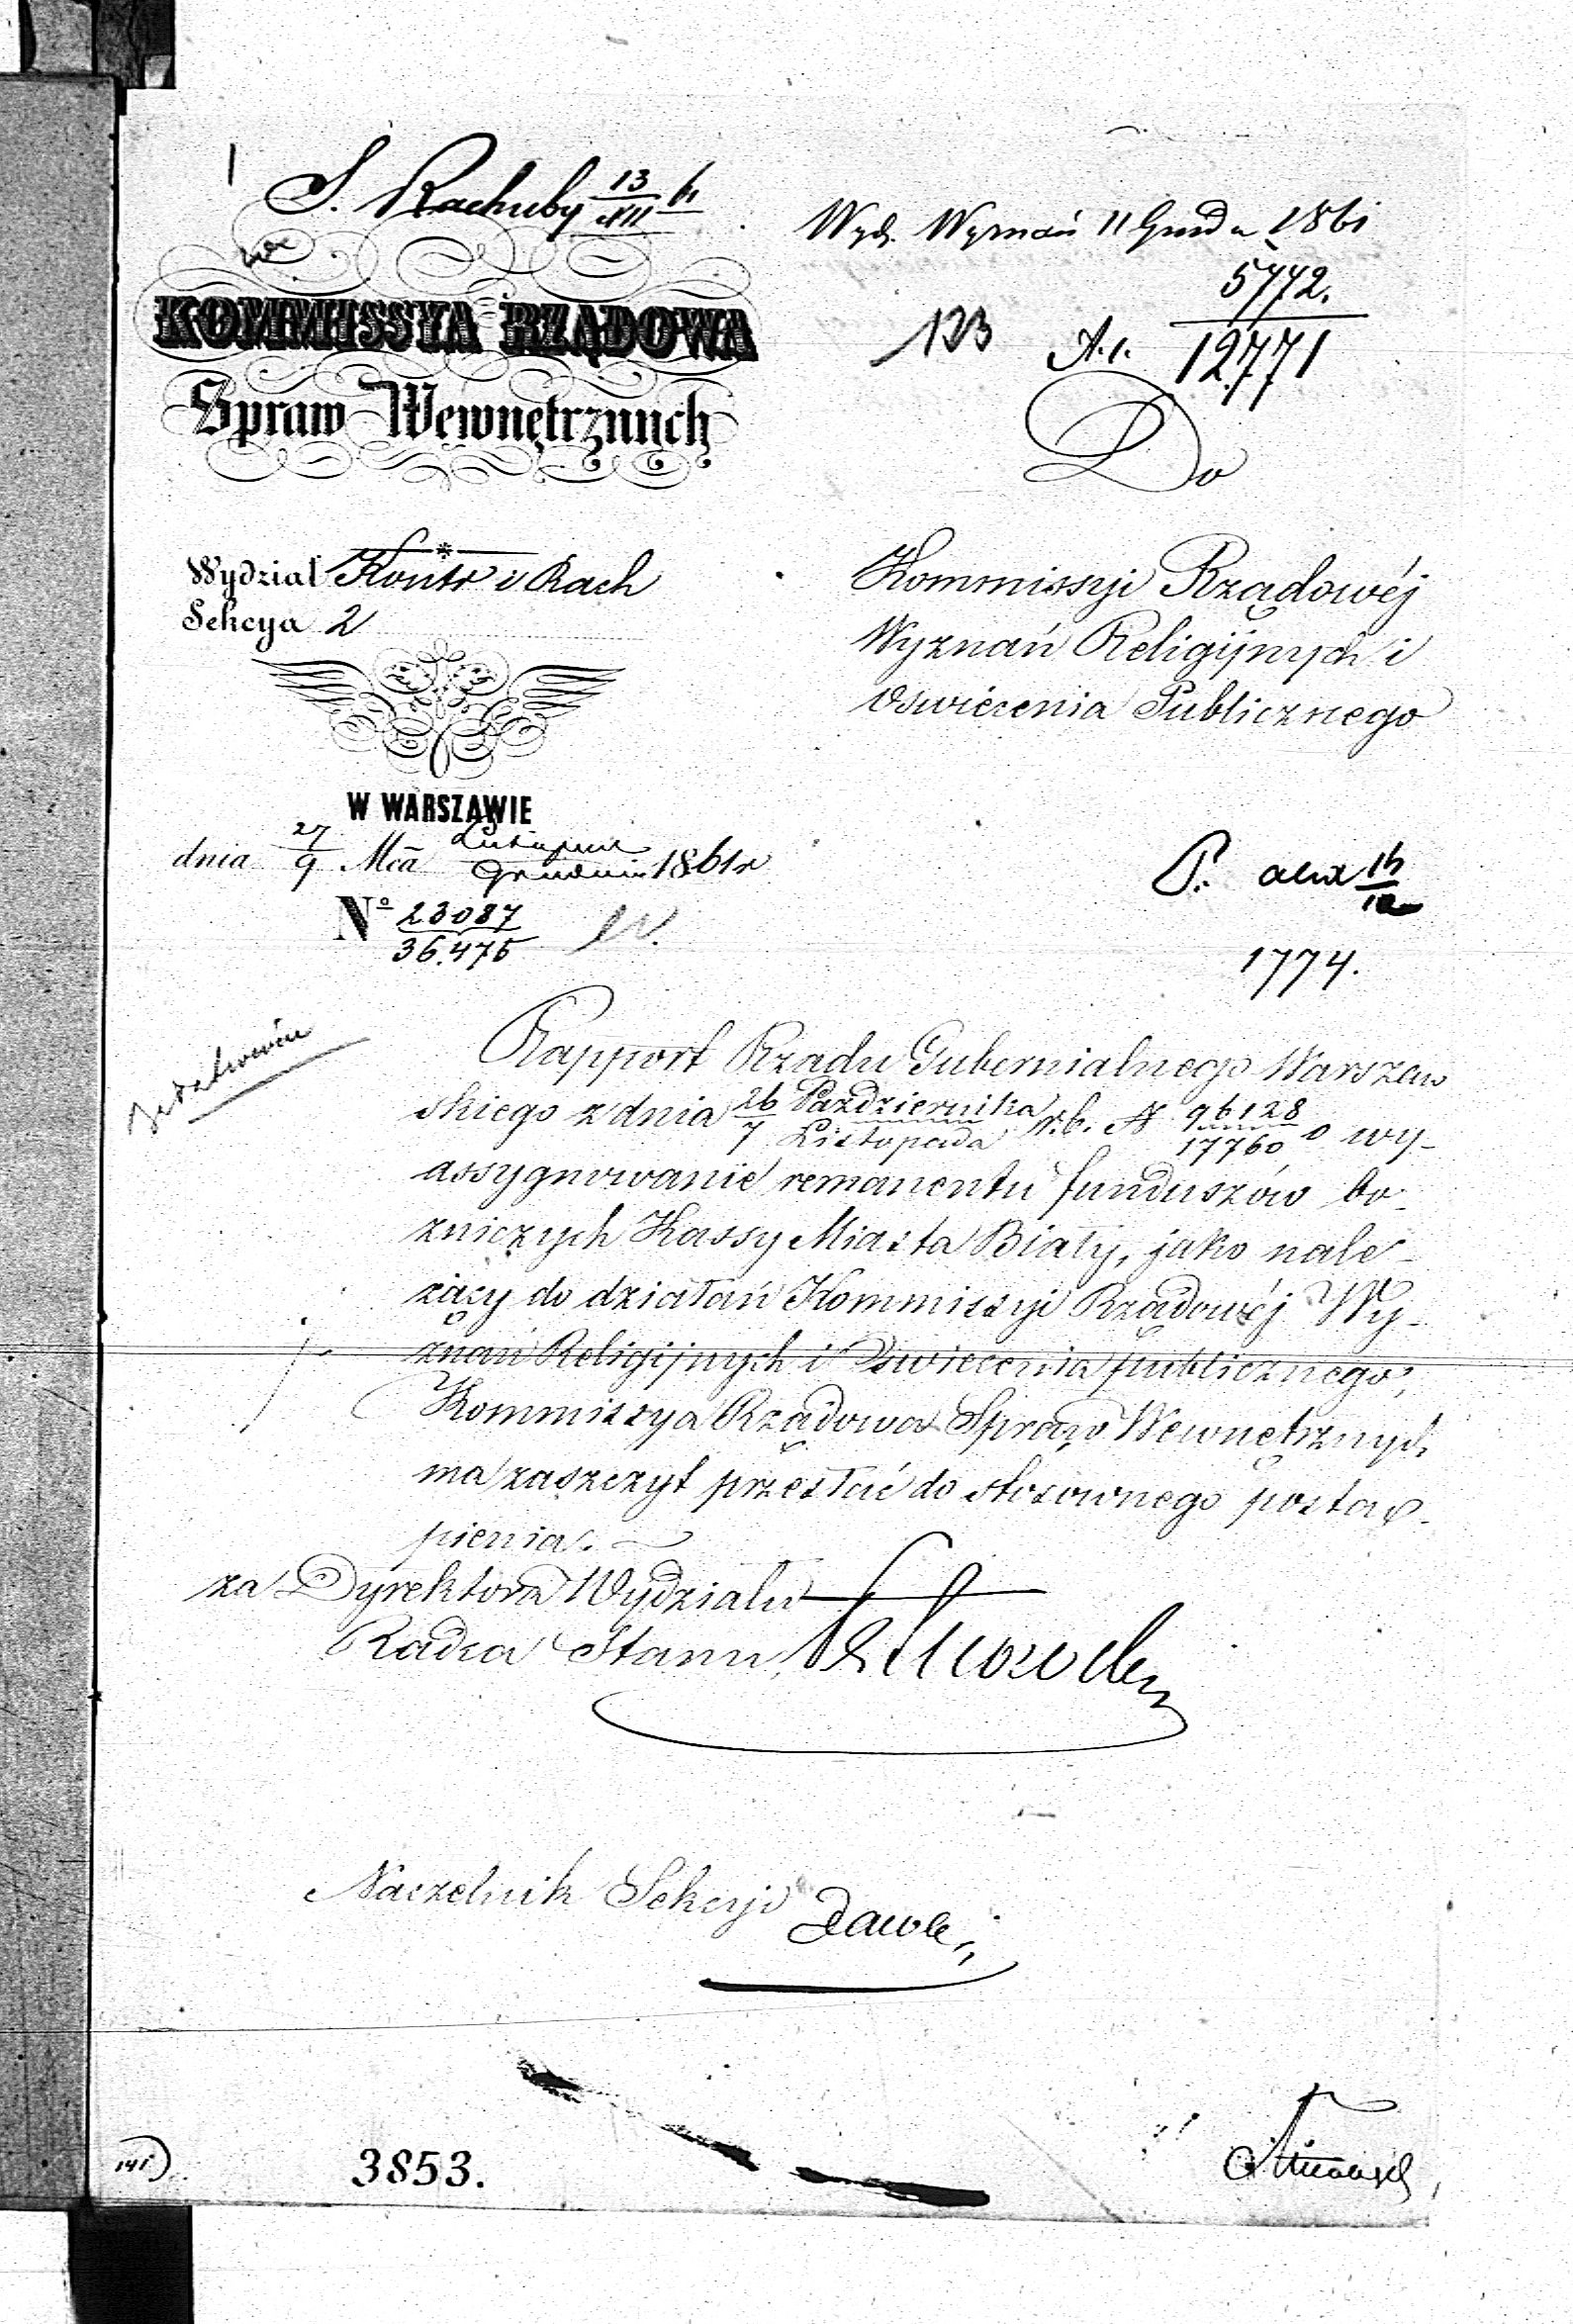 S. Rachuby 13/XII 61
Wyd. Wyznań 11 Grud. 1861
5772.
123 12771
KOMMISSYA RZĄDOWA
Spraw Wewnętrznych
Do
Wydział Kontr i Rach
Sekcya 2
Kommissyi Rządowéj
Wyznań Religijnych i
Oswiecenia Publicznego
W WARSZAWIE
dnia 27/9 Mca Listopada/Grudnia 1861r
Nº 23087/36.475
1774.
Rapport Rządu Gubernialnego Warszaw
skiego z dnia 26 Października/7 Listopada r.b. N 96128/17760 o wy-
assygnowanie remanentu funduszów bo-
zniczych Kassy Miasta Biały, jako nale-
żący do działań Kommissyi Rządowéj Wy-
znań Religijnych i Oswiecenia publicznego,
Kommissya Rządowa Spraw Wewnętrznych
ma zaszczyt przesłać do stosownego postą-
pienia.
za Dyrektora Wydziału
Radca Stanu
Naczelnik Sekcyi
141
3853.